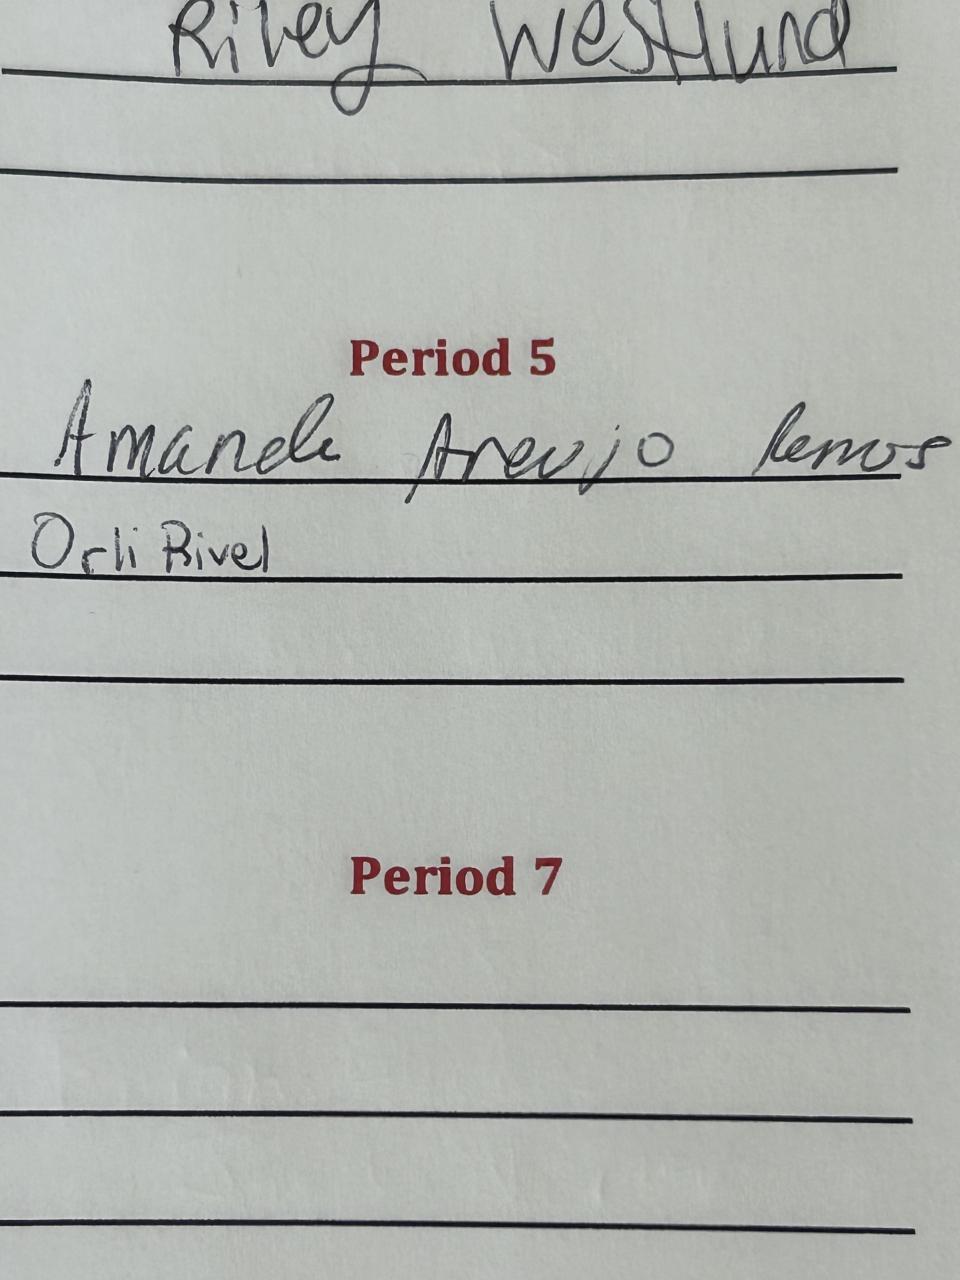 Riley Westlund
Period 5
Amanda Araujo lemos
Orli Rivel
Period 7